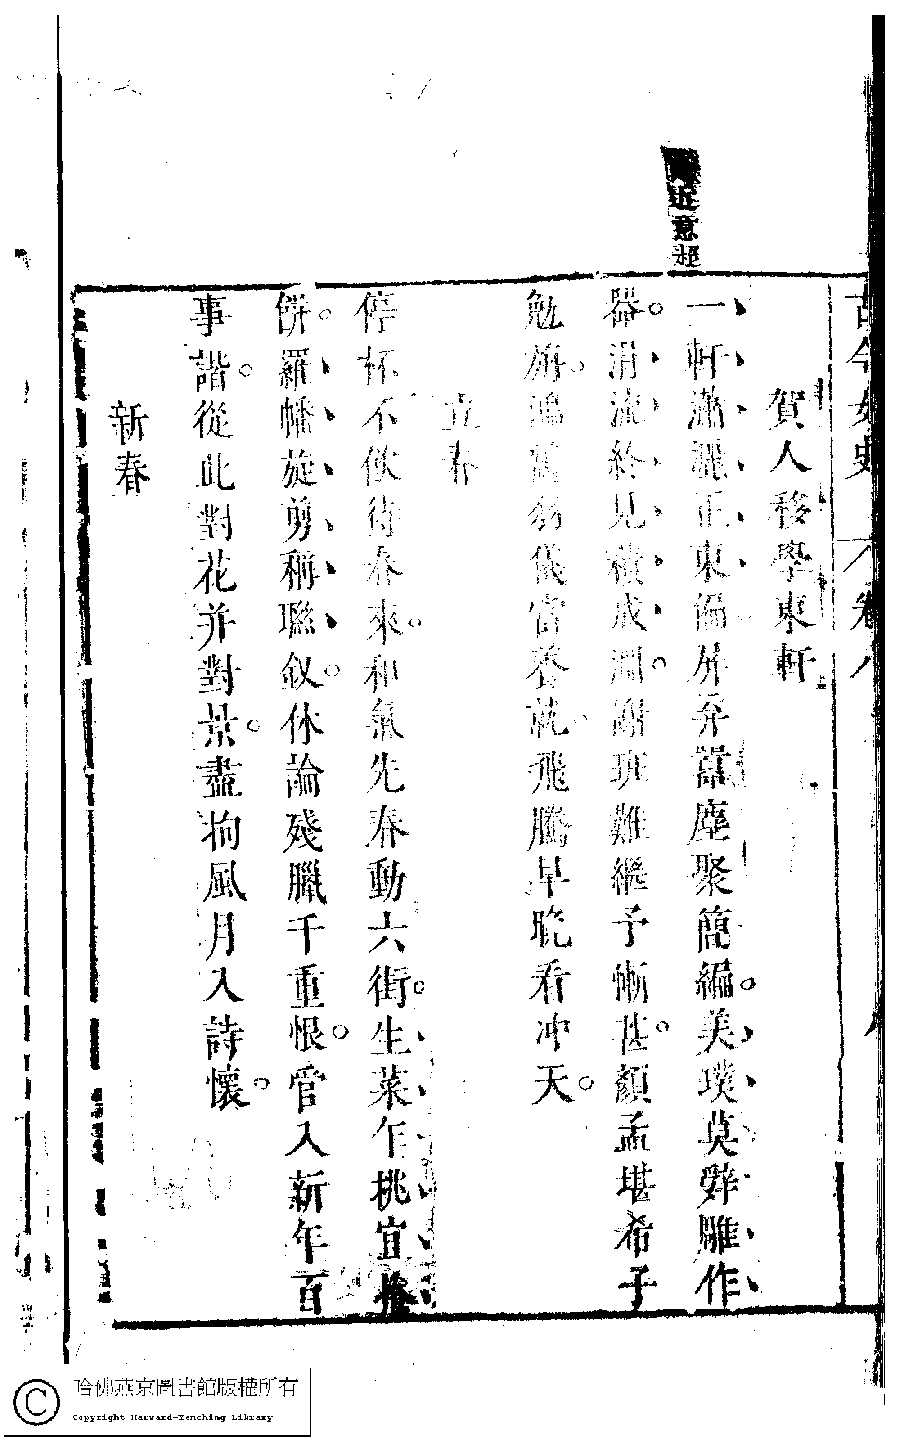 古今女史 卷八
近意超
賀人移學東軒
一軒瀟灑正東偏屏弃囂塵聚簡編美璞莫辤雕作
器涓流終見積成淵謝班難繼予慚甚顏孟堪希子
勉旃鴻鵠羽儀當養就飛騰早晚看冲天
立春
停杯不飲待春來和氣先春動六街生菜乍挑宜捲
餅羅幡旋剪稱聯釵休論殘臘千重恨管入新年百
事諧從此對花并對景盡拘風月入詩懷
新春
哈佛燕京圖書館版權所有
Copyright Harvard-Yenching Library